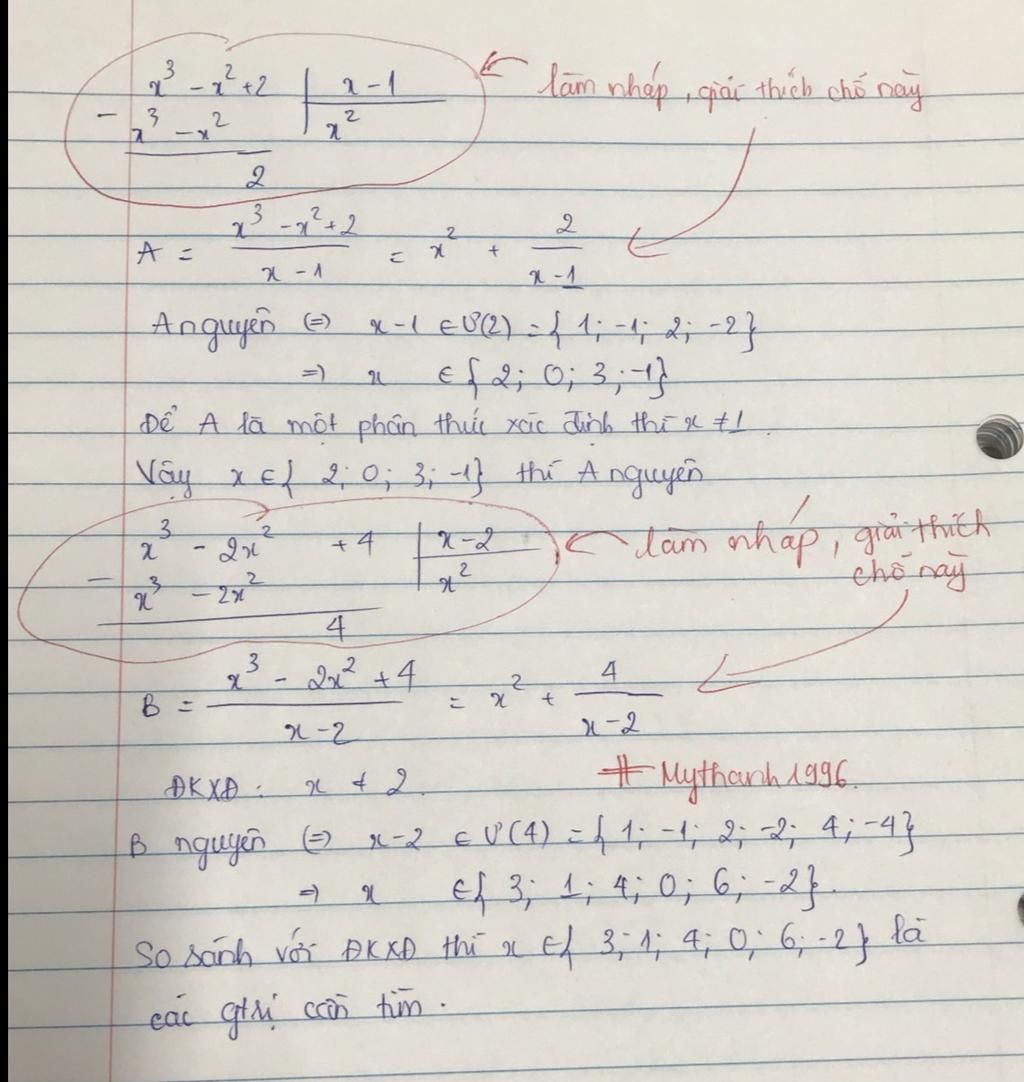 x³ - x² + 2 | x - 1
làm nháp, giải thích chỗ này
- x³ - x² | x²
2
A = (x³ - x² + 2)/(x - 1) = x² + 2/(x - 1)
A nguyên (=) x-1 ∈ Ư(2) = { 1; -1; 2; -2}
=) x ∈ { 2; 0; 3; -1}
Để A là một phân thức xác định thì x ≠ 1.
Vậy x ∈ { 2; 0; 3; -1} thì A nguyên
x³ - 2x² + 4 | x - 2
làm nháp, giải thích
chỗ này
- x³ - 2x² | x²
4
B = (x³ - 2x² + 4)/(x - 2) = x² + 4/(x - 2)
# Mythanh1996.
ĐKXĐ: x ≠ 2.
B nguyên (=) x-2 ∈ Ư(4) = { 1; -1; 2; -2; 4; -4}
=) x ∈ { 3; 1; 4; 0; 6; -2}.
So sánh với ĐKXĐ thì x ∈ { 3; 1; 4; 0; 6; -2} là
các gtrị cần tìm.